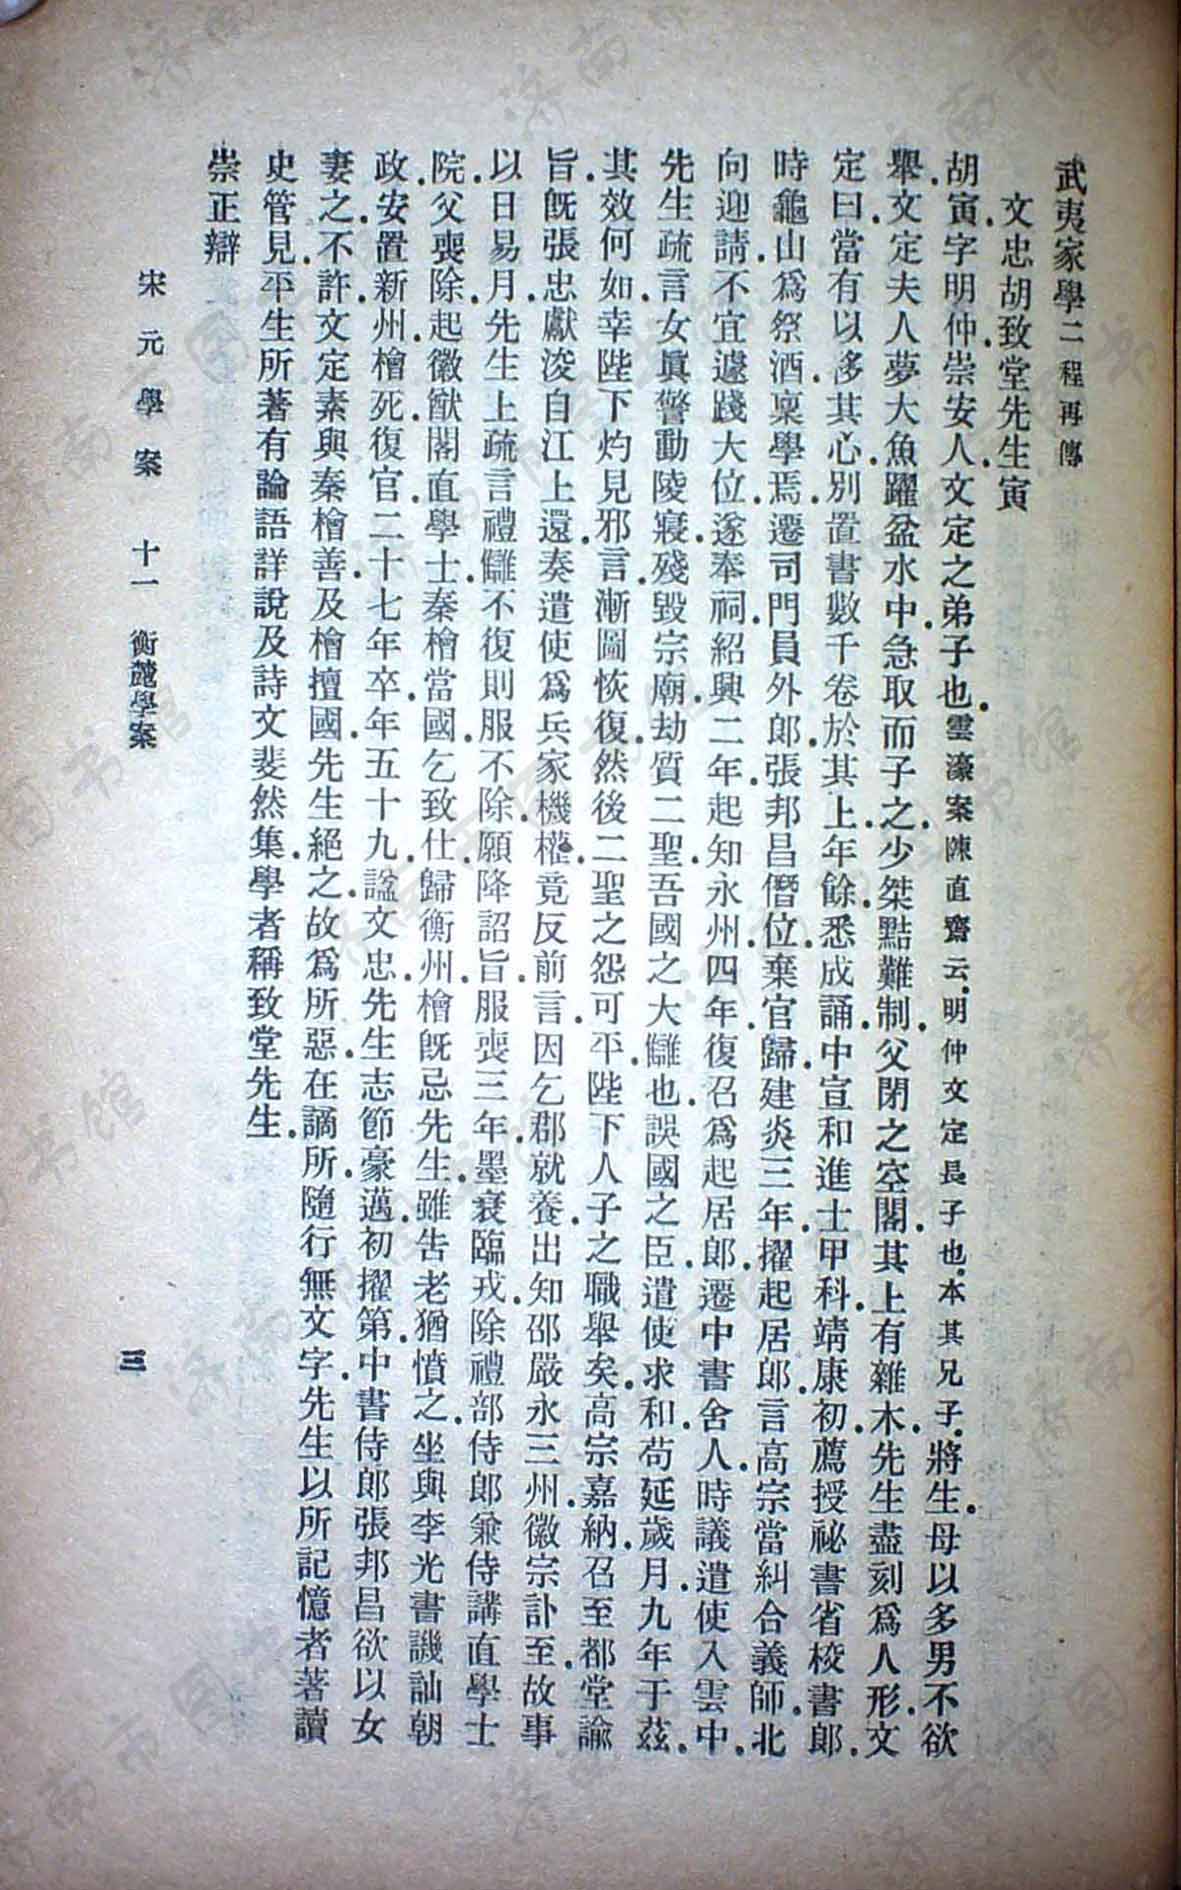 武夷家學二程再傳
文忠胡致堂先生寅
胡寅字明仲崇安人文定之弟子也雲濠案陳直齋云明仲文定長子也本其兄子將生母以多男不欲
舉文定夫人夢大魚躍盆水中急取而子之少桀黠難制父閉之空閣其上有雜木先生盡刻爲人形文
定曰當有以移其心別置書數千卷於其上年餘悉成誦中宣和進士甲科靖康初薦授祕書省校書郎
時龜山爲祭酒稟學焉遷司門員外郎張邦昌僭位棄官歸建炎三年擢起居郎言高宗當糾合義師北
向迎請不宜遽踐大位遂奉祠紹興二年起知永州四年復召爲起居郎遷中書舍人時議遣使入雲中
先生疏言女眞警動陵寢殘毀宗廟劫質二聖吾國之大讎也誤國之臣遣使求和苟延歲月九年于茲
其效何如幸陛下灼見邪言漸圖恢復然後二聖之怨可平陛下人子之職舉矣高宗嘉納召至都堂諭
旨既張忠獻浚自江上還奏遣使爲兵家機權竟反前言因乞郡就養出知邵嚴永三州徽宗訃至故事
以日易月先生上疏言禮讎不復則服不除願降詔旨服喪三年墨衰臨戎除禮部侍郎兼侍講直學士
院父喪除起徽猷閣直學士秦檜當國乞致仕歸衡州檜既忌先生雖告老猶憤之坐與李光書譏訕朝
政安置新州檜死復官二十七年卒年五十九諡文忠先生志節豪邁初擢第中書侍郎張邦昌欲以女
妻之不許文定素與秦檜善及檜擅國先生絕之故爲所惡在謫所隨行無文字先生以所記憶者著讀
史管見平生所著有論語詳說及詩文斐然集學者稱致堂先生
崇正辯
宋元學案 十一 衡麓學案 三
济南市图书馆